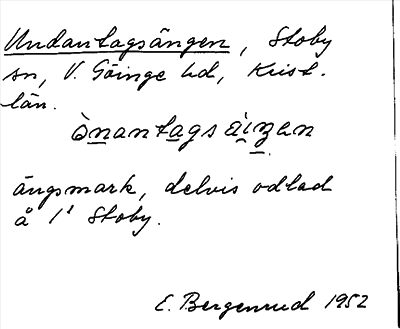 Undantagsängen, Stoby
sn, V. Göinge hd, Krist.
län.
ònantagsàiʒen
ängsmark, delvis odlad
å 1¹ Stoby.
E. Bergenrud 1952